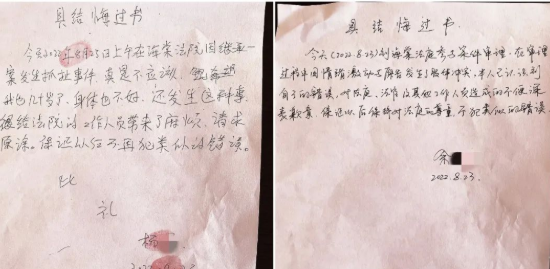 具结悔过书
今天2022年8月23日上午在海棠法院因继承一
案发生抓扯事件真是不应该,
我也几十岁了,身体也不好,还发生这种事
给法院的工作人员带来了麻烦,请求
原谅。保证从今不再犯类似的错误。
此
礼
杨
2022.8.23
具结悔过书
今天(2022.8.23)到海棠法庭参与案件审理,在审理
过程中因情绪激动与原告发生了肢体冲突,本人已认识到
自己的错误,对法庭、法官及其他工作人员造成的不便深
表歉意,保证以后保持对法庭的尊重,不犯类似的错误
余
2022.8.23.